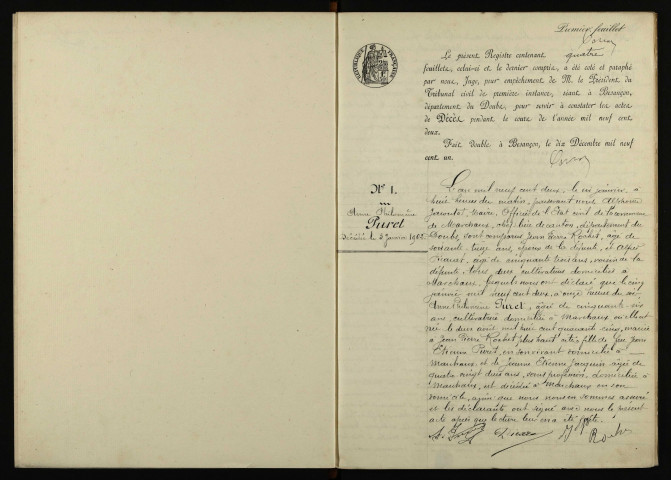 Premier feuillet
Le présent Registre contenant quatre
feuillets, celui-ci et le dernier compris, a été coté et paraphé
par nous, Juge, pour empêchement de M. le Président du
Tribunal civil de première instance, séant à Besançon,
département du Doubs, pour servir à constater les actes
de Décès pendant le cours de l'année mil neuf cent
deux.
Fait double à Besançon, le dix Décembre mil neuf
cent un.
N° 1.
Anne Philomène
Puret
décédée le 5 Janvier 1902
L'an mil neuf cent deux, le six janvier, à
huit heures du matin, pardevant nous Alphonse
Maire, Officier de l'État civil de la commune
de Marchaux, chef-lieu de canton, département du
Doubs, sont comparus Jean Pierre âgé de
soixante ans, époux de la défunte, et
âgé de cinquante trois ans, voisin de la
défunte, tous deux cultivateurs domiciliés à
Marchaux, lesquels nous ont déclaré que le cinq
janvier mil neuf cent deux, à onze heures du soir
Anne Philomène Puret, âgée de cinquante six
ans, cultivatrice domiciliée à Marchaux où elle est
née le deux août mil huit cent quarante cinq, mariée
à Jean Pierre plus haut cité, fille de feu Jean
Etienne Puret, en son vivant domicilié à
Marchaux et de Jeanne Etienne Jacquin âgée de
quatre vingt deux ans, sans profession domiciliée à
Marchaux, est décédée à Marchaux en son
domicile, ainsi que nous nous en sommes assuré
et les déclarants ont signé avec nous le présent
acte après que lecture leur en a été faite.